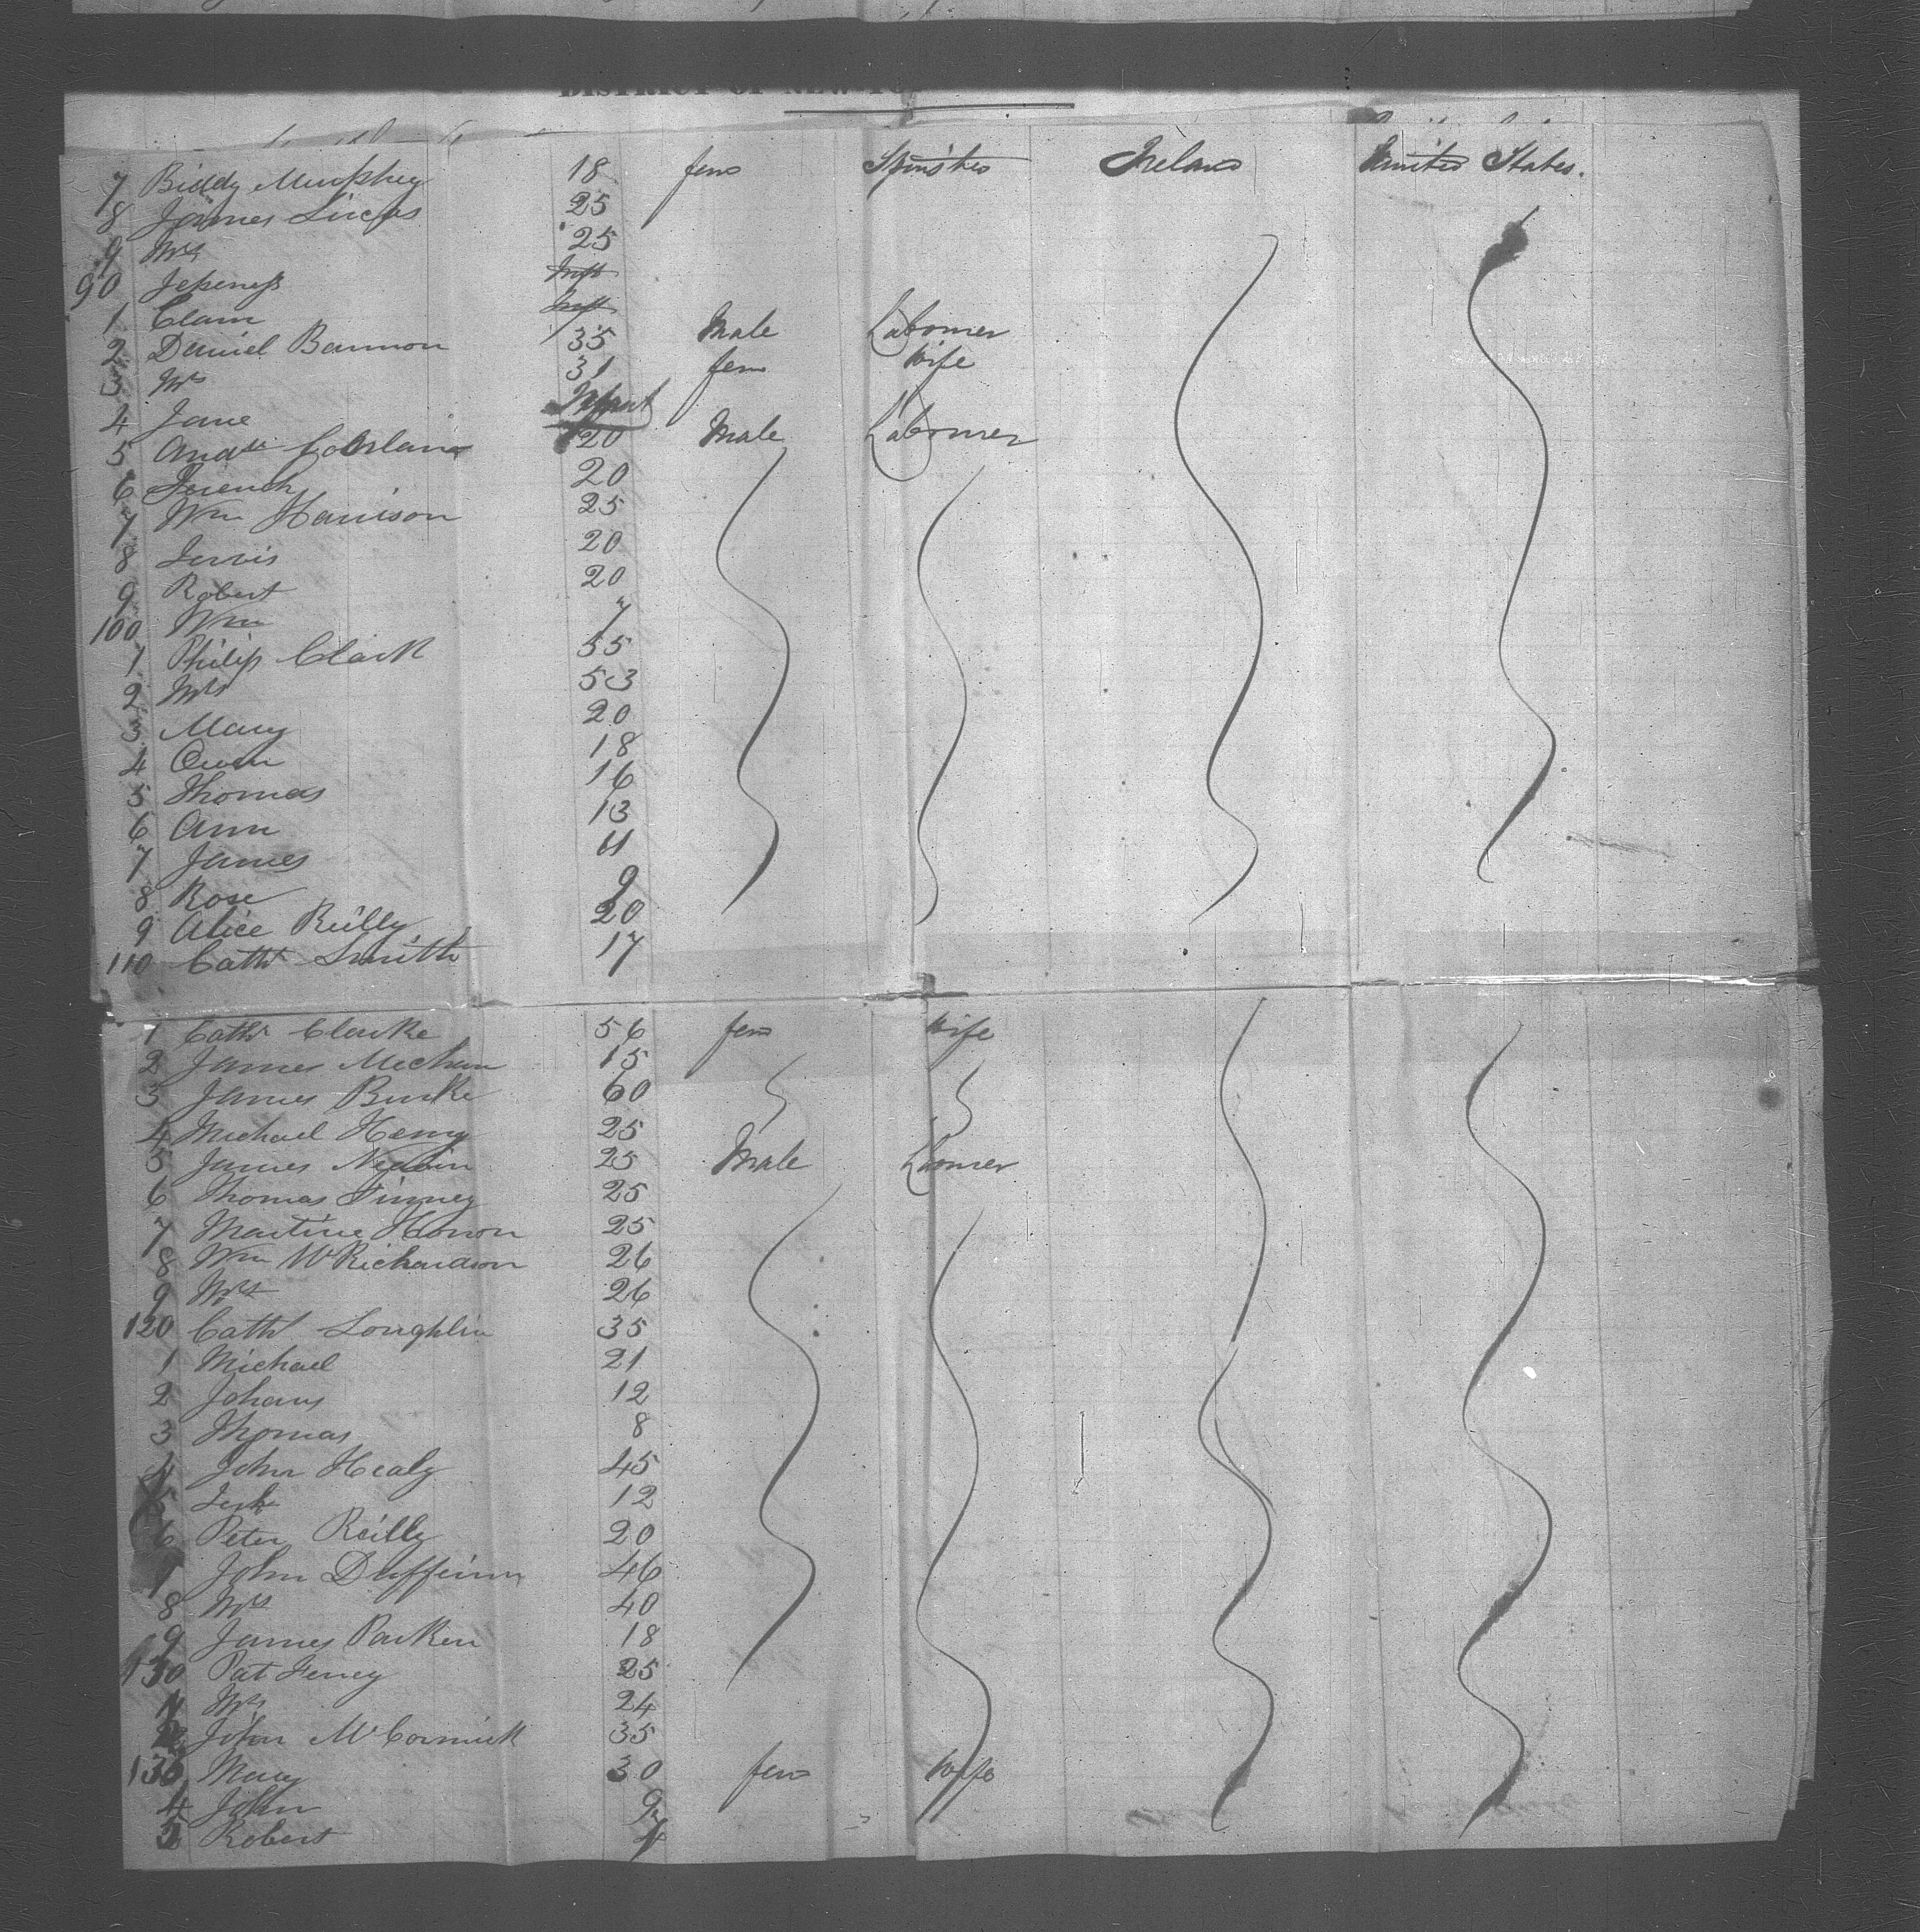 DISTRICT OF NEW-YO
7 Biddy Murphey 18 fem Spinster Ireland United States.
8 James Lucas 25
9 Mrs 25
90 Inft
1 Clam Inft
2 Daniel Bannon 35 Male Labourer
3 Mrs 31 fem Wife
4 Jane Infant
5 20 Male Labourer
6 20
7 Wm Harrison 25
8 Jervis 20
9 Robert 20
100 Wm 7
1 Philip Clark 55
2 Mrs 53
3 Mary 20
4 Owen 18
5 Thomas 16
6 Ann 13
7 James 11
8 Rose 9
9 Alice Reilly 20
110 Cath Smith 17
1 Cath Clarke 56 fem Wife
2 James Mechan 15
3 James Burke 60
4 Michael Henry 25
5 James 25 Male Labourer
6 Thomas Finney 25
7 Martine Honon 25
8 Wm W Richardson 26
9 Mrs 26
120 Cath Loughlin 35
1 Michael 21
2 12
3 Thomas 8
4 John Healy 45
5 12
6 Peter Reilly 20
7 John 46
8 Mrs 40
9 James Parker 18
130 Pat Feney 25
1 Mrs 24
2 John McCormick 35
133 Mary 30 fem Wife
4 John 9
5 Robert 4